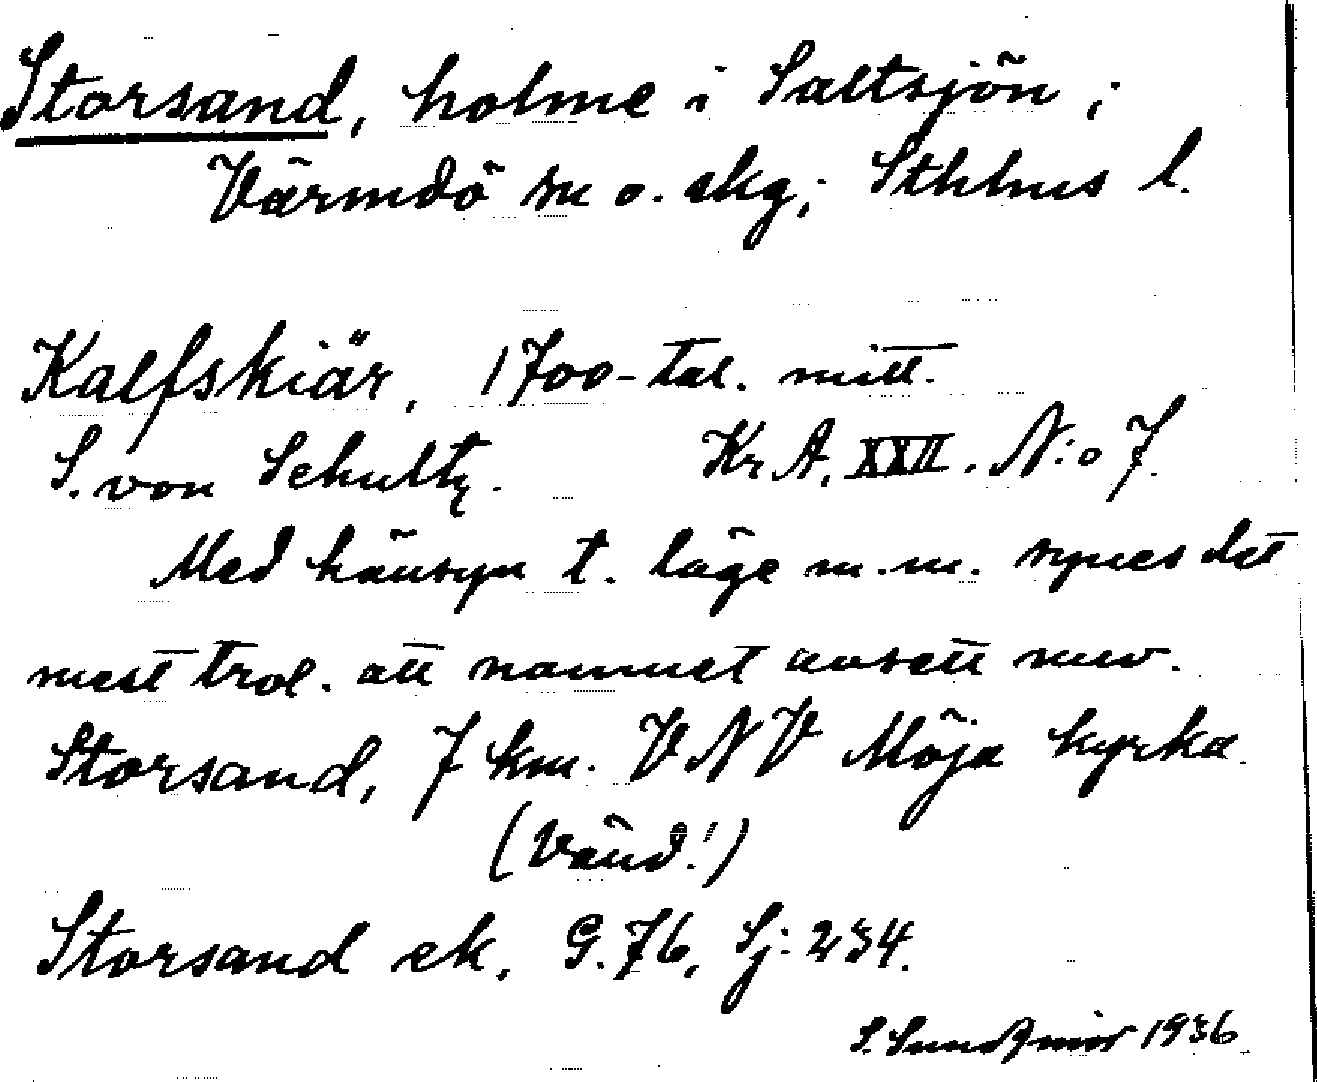 Storsand, holme i Saltsjön;
Värmdö sn o. skg; Sthlms l.
Kalfskiär, 1700-tal. mitt.
S. von Schultz. Kr A. XXII. N:o 7.
Med hänsyn t. läge m.m. synes det
mest trol. att namnet avsett nuv.
Storsand, 7 km. VNV Möja kyrka.
(Vänd!)
Storsand ek. G.76, Sj: 234.
S. 1936